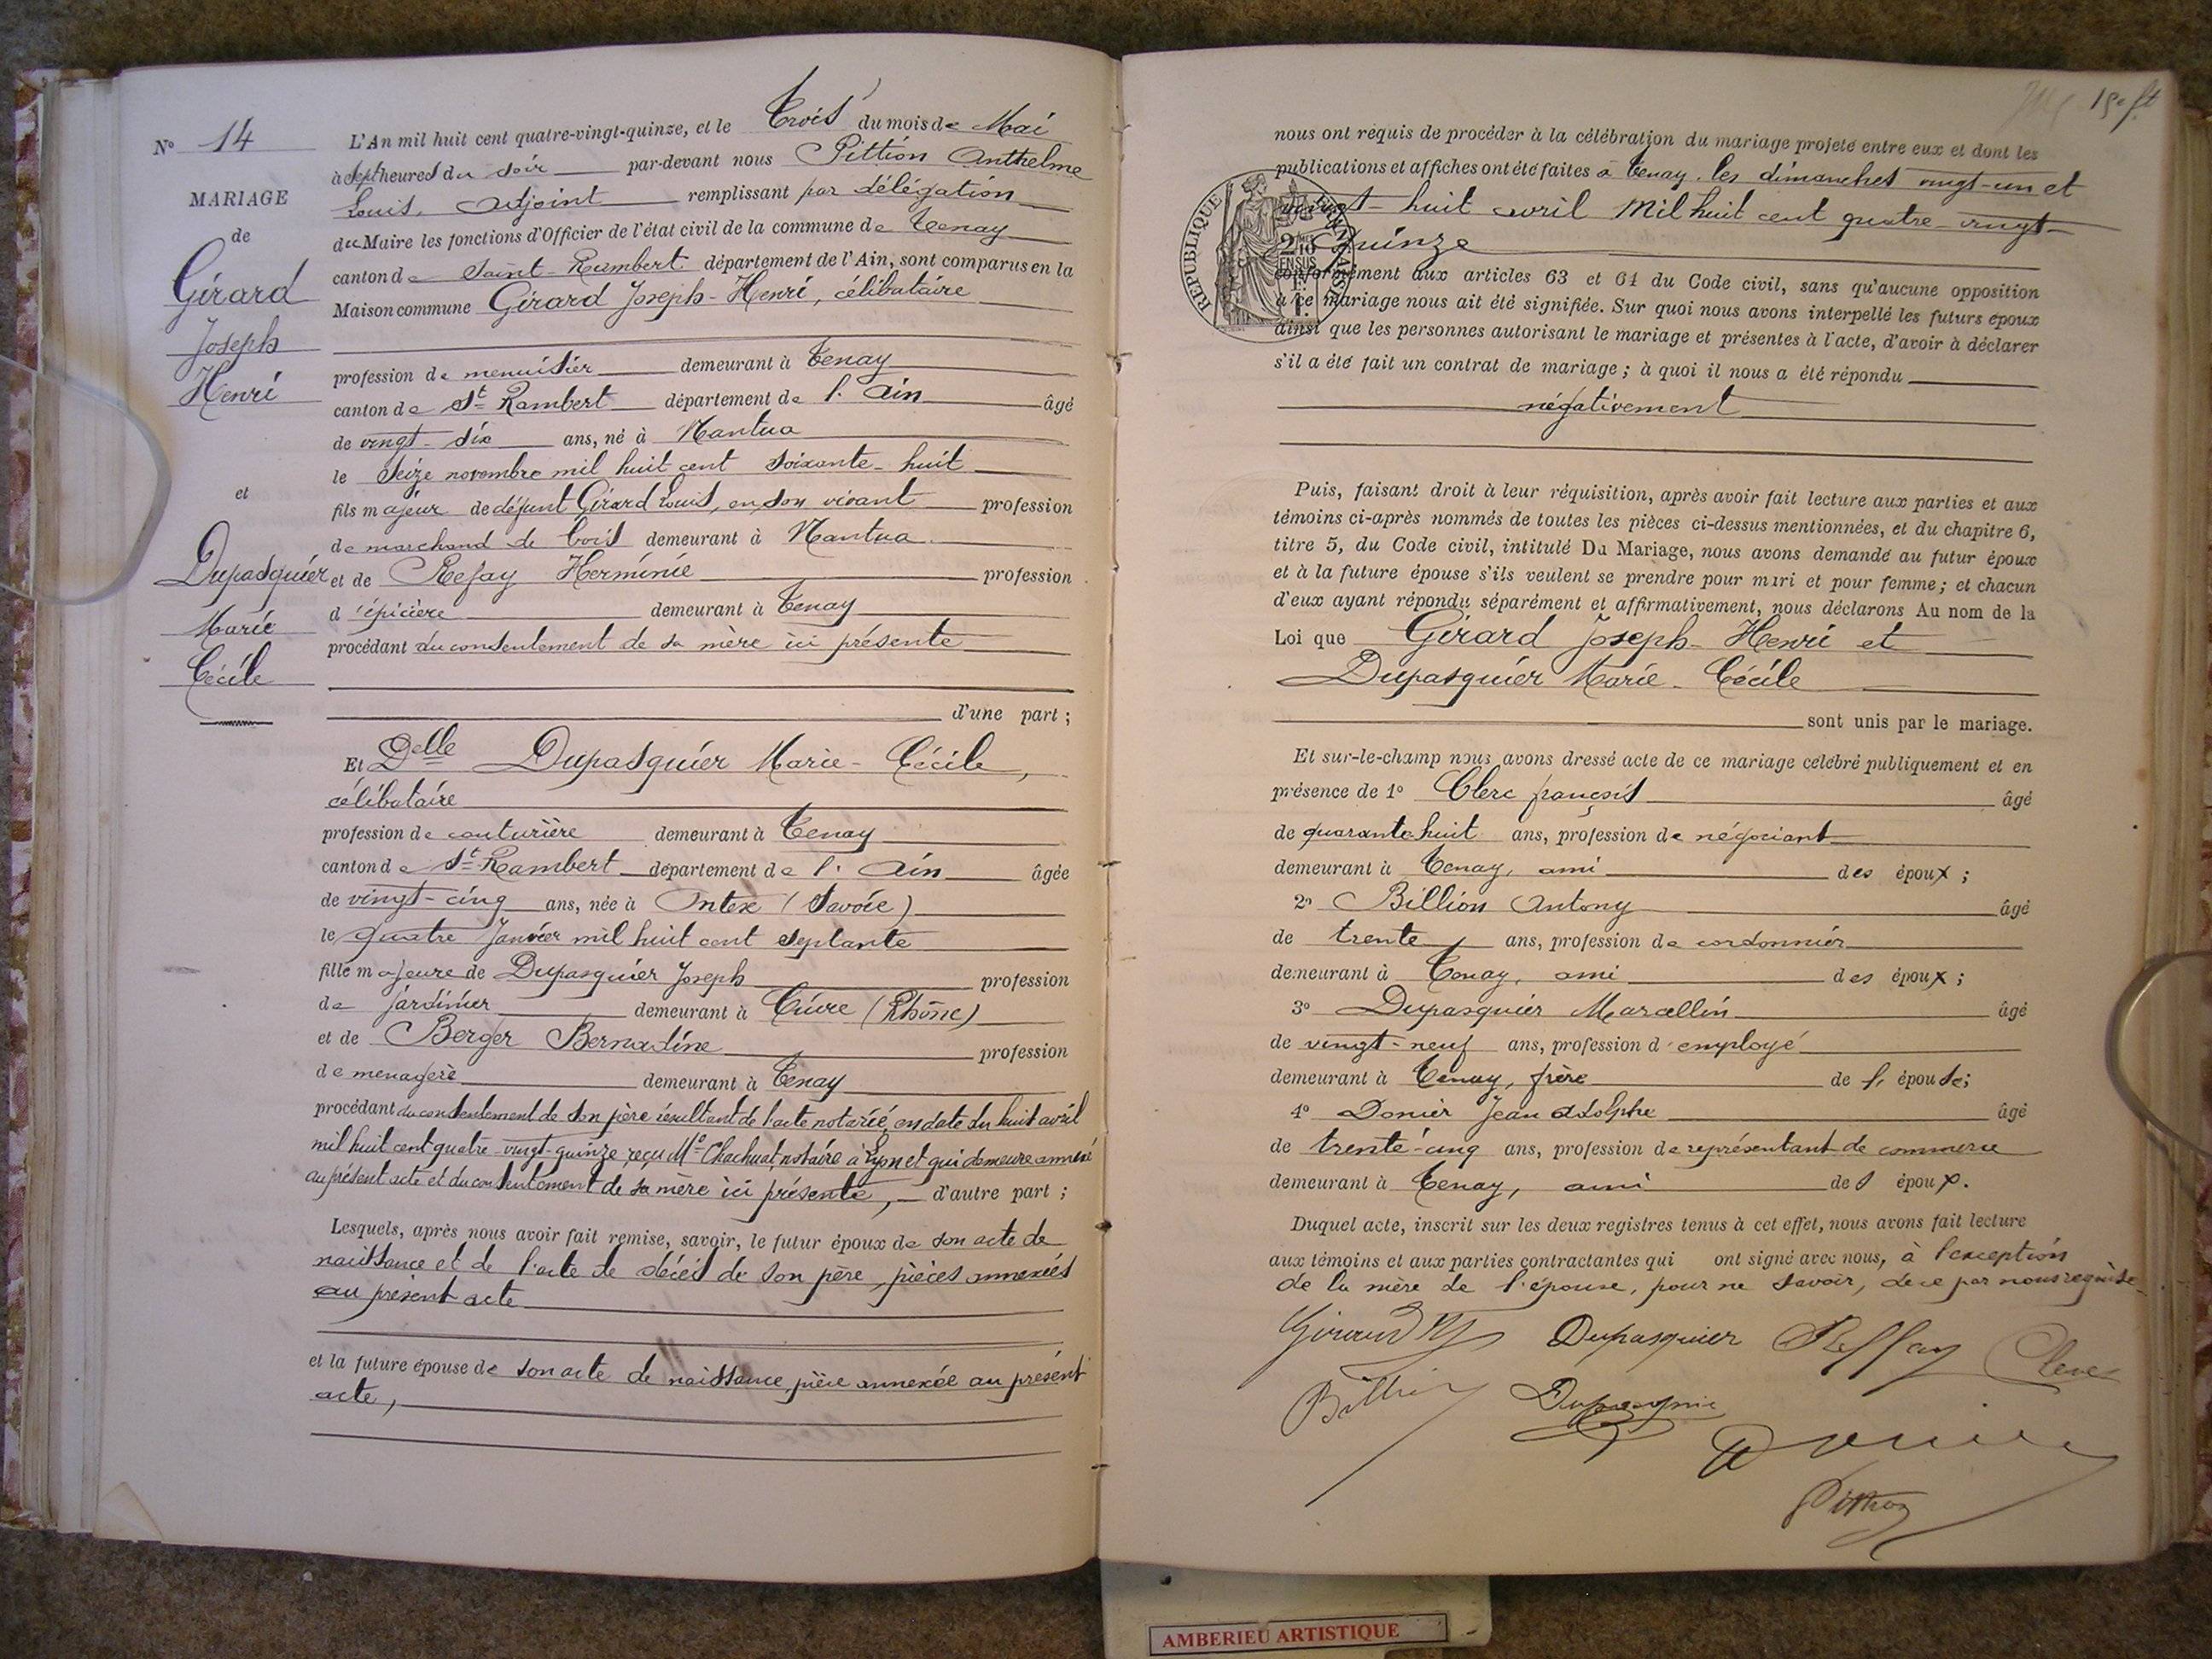 N° 14
MARIAGE
de
Girard
Joseph
Henri
et
Dupasquier
Marie
Cécile
L'An mil huit cent quatre-vingt-quinze, et le Trois du mois de Mai
à Sept heures du soir par-devant nous Pittion Anthelme
Louis, Adjoint remplissant par délégation
du Maire les fonctions d'Officier de l'état civil de la commune de Tenay
canton de Saint-Rambert département de l'Ain, sont comparus en la
Maison commune Girard Joseph-Henri, célibataire
profession de menuisier demeurant à Tenay
canton de St Rambert département de l'Ain âgé
de vingt-six ans, né à Nantua
le Seize novembre mil huit cent soixante-huit
fils majeur de défunt Girard Louis, en son vivant profession
de marchand de bois demeurant à Nantua
et de Refay Herminie profession
d'épicière demeurant à Tenay
procédant du consentement de sa mère ici présente
d'une part ;
Et Delle Dupasquier Marie-Cécile,
célibataire
profession de couturière demeurant à Tenay
canton de St-Rambert département de l'Ain âgée
de vingt-cinq ans, née à Ontex (Savoie)
le quatre Janvier mil huit cent septante
fille majeure de Dupasquier Joseph profession
de jardinier demeurant à Cuire (Rhône)
et de Berger Bernadine profession
de menagère demeurant à Tenay
procédant du consentement de son père résultant de l'acte notarié, en date du huit avril
mil huit cent quatre-vingt-quinze reçu Me Chachuat notaire à Lyon et qui demeure annexé
au présent acte et du consentement de sa mère ici présente, d'autre part ;
Lesquels, après nous avoir fait remise, savoir, le futur époux de son acte de
naissance et de l'acte de décès de son père, pièces annexées
au présent acte
et la future épouse de son acte de naissance, pièce annexée au présent
acte,
nous ont requis de procéder à la célébration du mariage projeté entre eux et dont les
publications et affiches ont été faites à Tenay les dimanches vingt-un et
vingt-huit avril mil huit cent quatre-vingt-
quinze
RÉPUBLIQUE FRANÇAISE
conformément aux articles 63 et 64 du Code civil, sans qu'aucune opposition
à ce mariage nous ait été signifiée. Sur quoi nous avons interpellé les futurs époux
ainsi que les personnes autorisant le mariage et présentes à l'acte, d'avoir à déclarer
s'il a été fait un contrat de mariage ; à quoi il nous a été répondu
négativement
Puis, faisant droit à leur réquisition, après avoir fait lecture aux parties et aux
témoins ci-après nommés de toutes les pièces ci-dessus mentionnées, et du chapitre 6,
titre 5, du Code civil, intitulé Du Mariage, nous avons demandé au futur époux
et à la future épouse s'ils veulent se prendre pour mari et pour femme ; et chacun
d'eux ayant répondu séparément et affirmativement, nous déclarons Au nom de la
Loi que Girard Joseph-Henri et
Dupasquier Marie-Cécile
sont unis par le mariage.
Et sur-le-champ nous avons dressé acte de ce mariage célébré publiquement et en
présence de 1° Clerc françois âgé
de quarante huit ans, profession de négociant
demeurant à Tenay, ami des époux ;
2° Billion Antony âgé
de trente ans, profession de cordonnier
demeurant à Tenay, ami des époux ;
3° Dupasquier Marcellin âgé
de vingt-neuf ans, profession d'employé
demeurant à Tenay, frère de l'épouse ;
4° Donier Jean Adolphe âgé
de trente-cinq ans, profession de représentant de commerce
demeurant à Tenay, ami des époux.
Duquel acte, inscrit sur les deux registres tenus à cet effet, nous avons fait lecture
aux témoins et aux parties contractantes qui ont signé avec nous, à l'exception
de la mère de l'épouse, pour ne savoir, de ce par nous requise
Girard Dupasquier Reffay Clerc
Billion Dupasquier
Donier
Pittion
AMBERIEU ARTISTIQUE